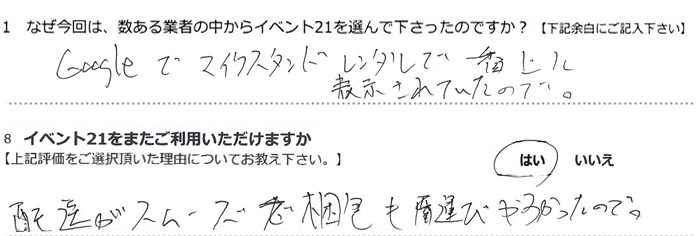 1 なぜ今回は、数ある業者の中からイベント21を選んで下さったのですか？【下記余白にご記入下さい】
Googleでマイクスタンドレンタルで1番上に
表示されていたので。
8 イベント21をまたご利用いただけますか
【上記評価をご選択頂いた理由についてお教え下さい。】
はい いいえ
配達がスムーズで梱包も 運びやすかったので。